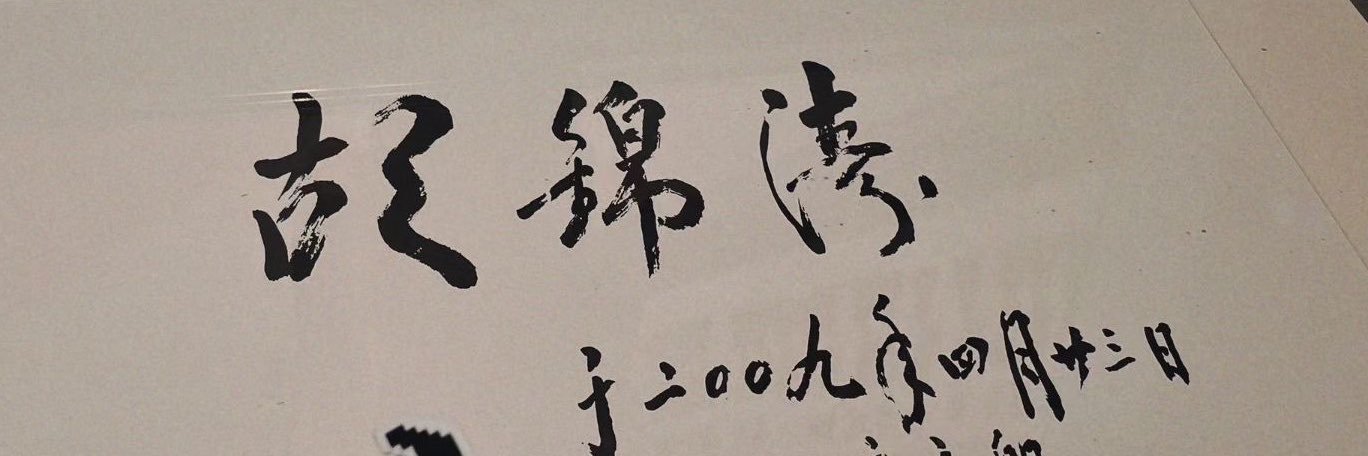 胡锦涛
于二00九年四月廿三日